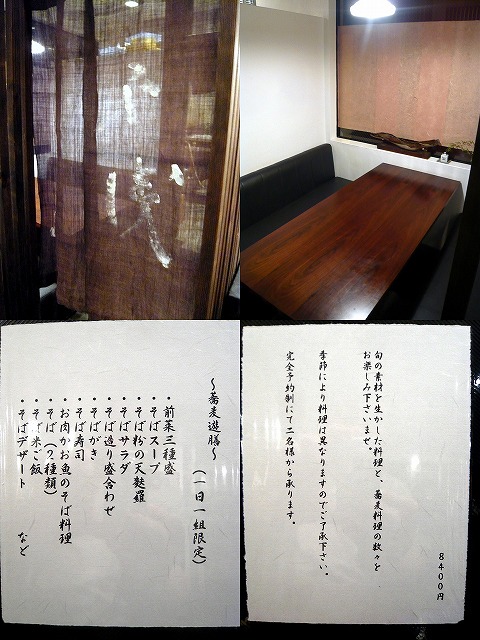 ～蕎麦遊膳～
（一日一組限定）
・前菜三種盛
・そばスープ
・そば粉の天麩羅
・そばサラダ
・そば造り盛合わせ
・そばがき
・そば寿司
・お肉かお魚のそば料理
・そば（２種類）
・そば米ご飯
・そばデザート
など
８４００円
旬の素材を生かした料理と、蕎麦料理の数々を
お楽しみ下さいませ。
季節により料理は異なりますのでご了承下さい。
完全予約制にて二名様から承ります。